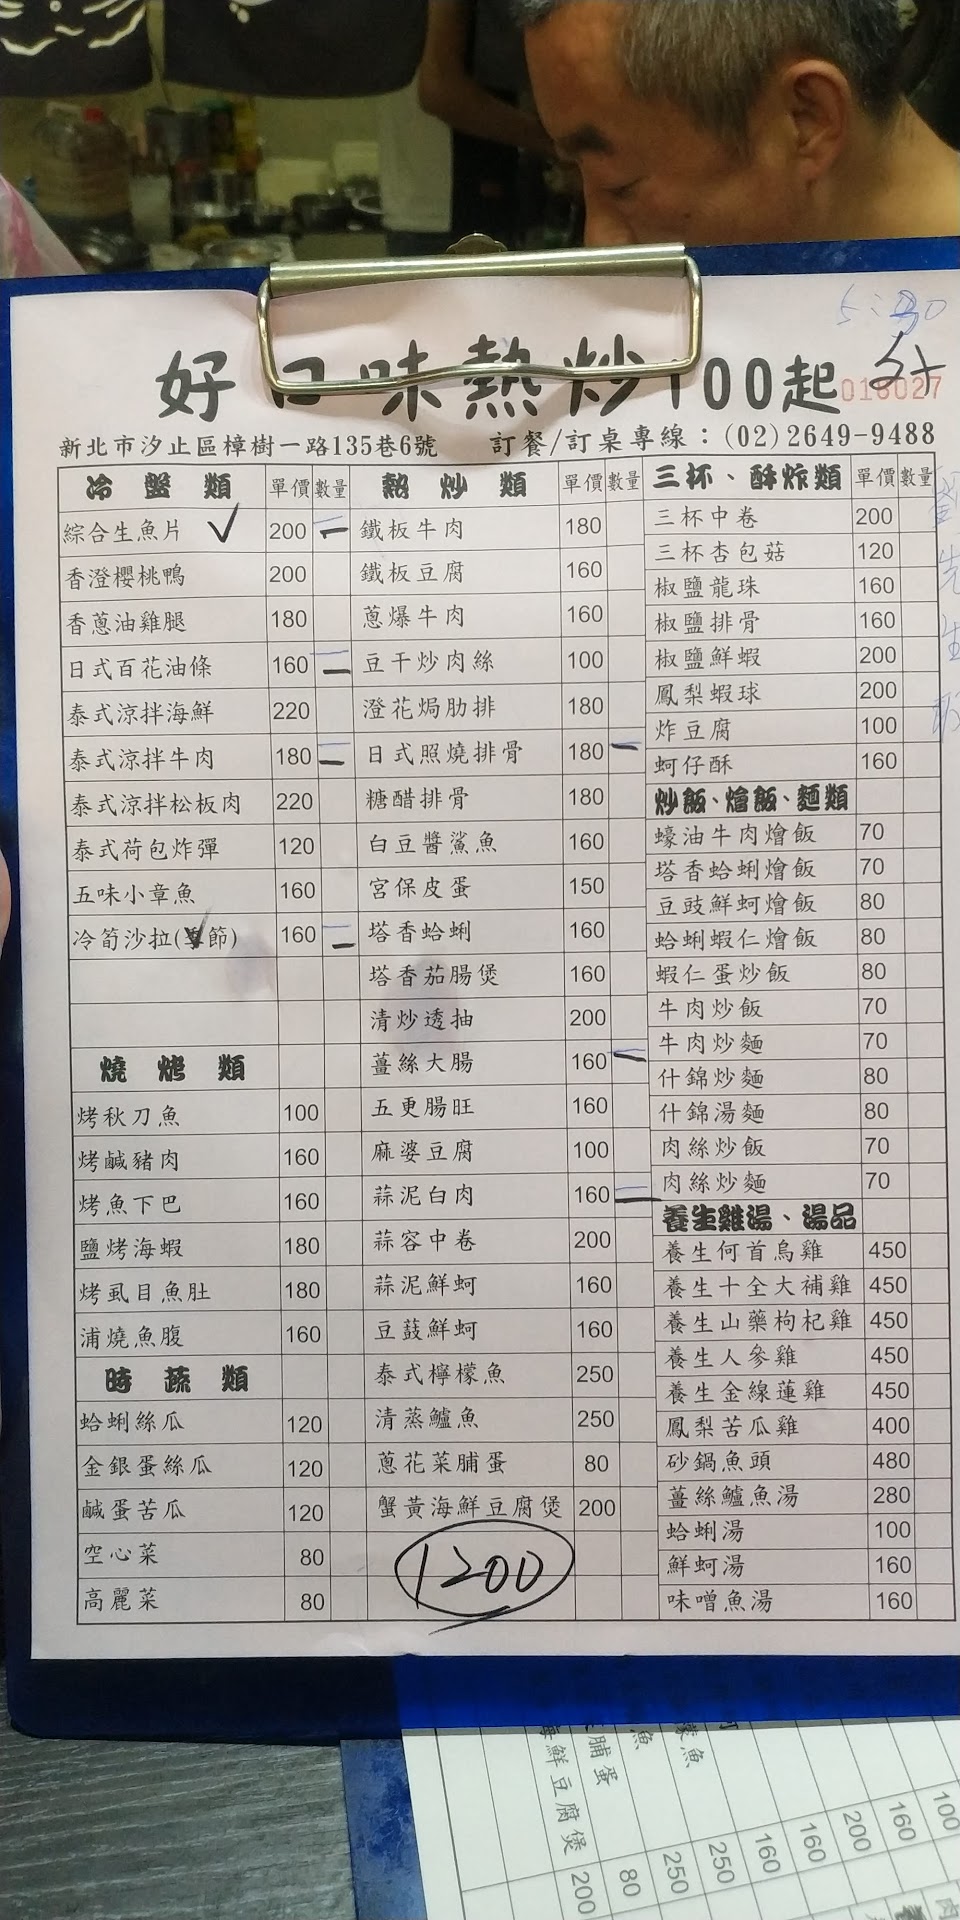 5:30
好口味熱炒100起
018027
新北市汐止區樟樹一路135巷6號 訂餐/訂桌專線：(02)2649-9488
冷盤類 單價 數量
綜合生魚片 ✓ 200 一
香澄櫻桃鴨 200
香蔥油雞腿 180
日式百花油條 160 一
泰式涼拌海鮮 220
泰式涼拌牛肉 180 一
泰式涼拌松板肉 220
泰式荷包炸彈 120
五味小章魚 160
冷筍沙拉(季節) ✓ 160 一
燒烤類
烤秋刀魚 100
烤鹹豬肉 160
烤魚下巴 160
鹽烤海蝦 180
烤虱目魚肚 180
浦燒魚腹 160
時蔬類
蛤蜊絲瓜 120
金銀蛋絲瓜 120
鹹蛋苦瓜 120
空心菜 80
高麗菜 80
熱炒類 單價 數量
鐵板牛肉 180
鐵板豆腐 160
蔥爆牛肉 160
豆干炒肉絲 100
澄花焗肋排 180
日式照燒排骨 180 一
糖醋排骨 180
白豆醬鯊魚 160
宮保皮蛋 150
塔香蛤蜊 160
塔香茄腸煲 160
清炒透抽 200
薑絲大腸 160 一
五更腸旺 160
麻婆豆腐 100
蒜泥白肉 160 一
蒜容中卷 200
蒜泥鮮蚵 160
豆鼓鮮蚵 160
泰式檸檬魚 250
清蒸鱸魚 250
蔥花菜脯蛋 80
蟹黃海鮮豆腐煲 200
1200
三杯、酥炸類 單價 數量
三杯中卷 200
三杯杏包菇 120
椒鹽龍珠 160
椒鹽排骨 160
椒鹽鮮蝦 200
鳳梨蝦球 200
炸豆腐 100
蚵仔酥 160
炒飯、燴飯、麵類
蠔油牛肉燴飯 70
塔香蛤蜊燴飯 70
豆豉鮮蚵燴飯 80
蛤蜊蝦仁燴飯 80
蝦仁蛋炒飯 80
牛肉炒飯 70
牛肉炒麵 70
什錦炒麵 80
什錦湯麵 80
肉絲炒飯 70
肉絲炒麵 70
養生雞湯、湯品
養生何首烏雞 450
養生十全大補雞 450
養生山藥枸杞雞 450
養生人參雞 450
養生金線蓮雞 450
鳳梨苦瓜雞 400
砂鍋魚頭 480
薑絲鱸魚湯 280
蛤蜊湯 100
鮮蚵湯 160
味噌魚湯 160
劉先生
海鮮豆腐煲 200
脯蛋 80
魚 250
檬魚 250
160
160
200
160
100